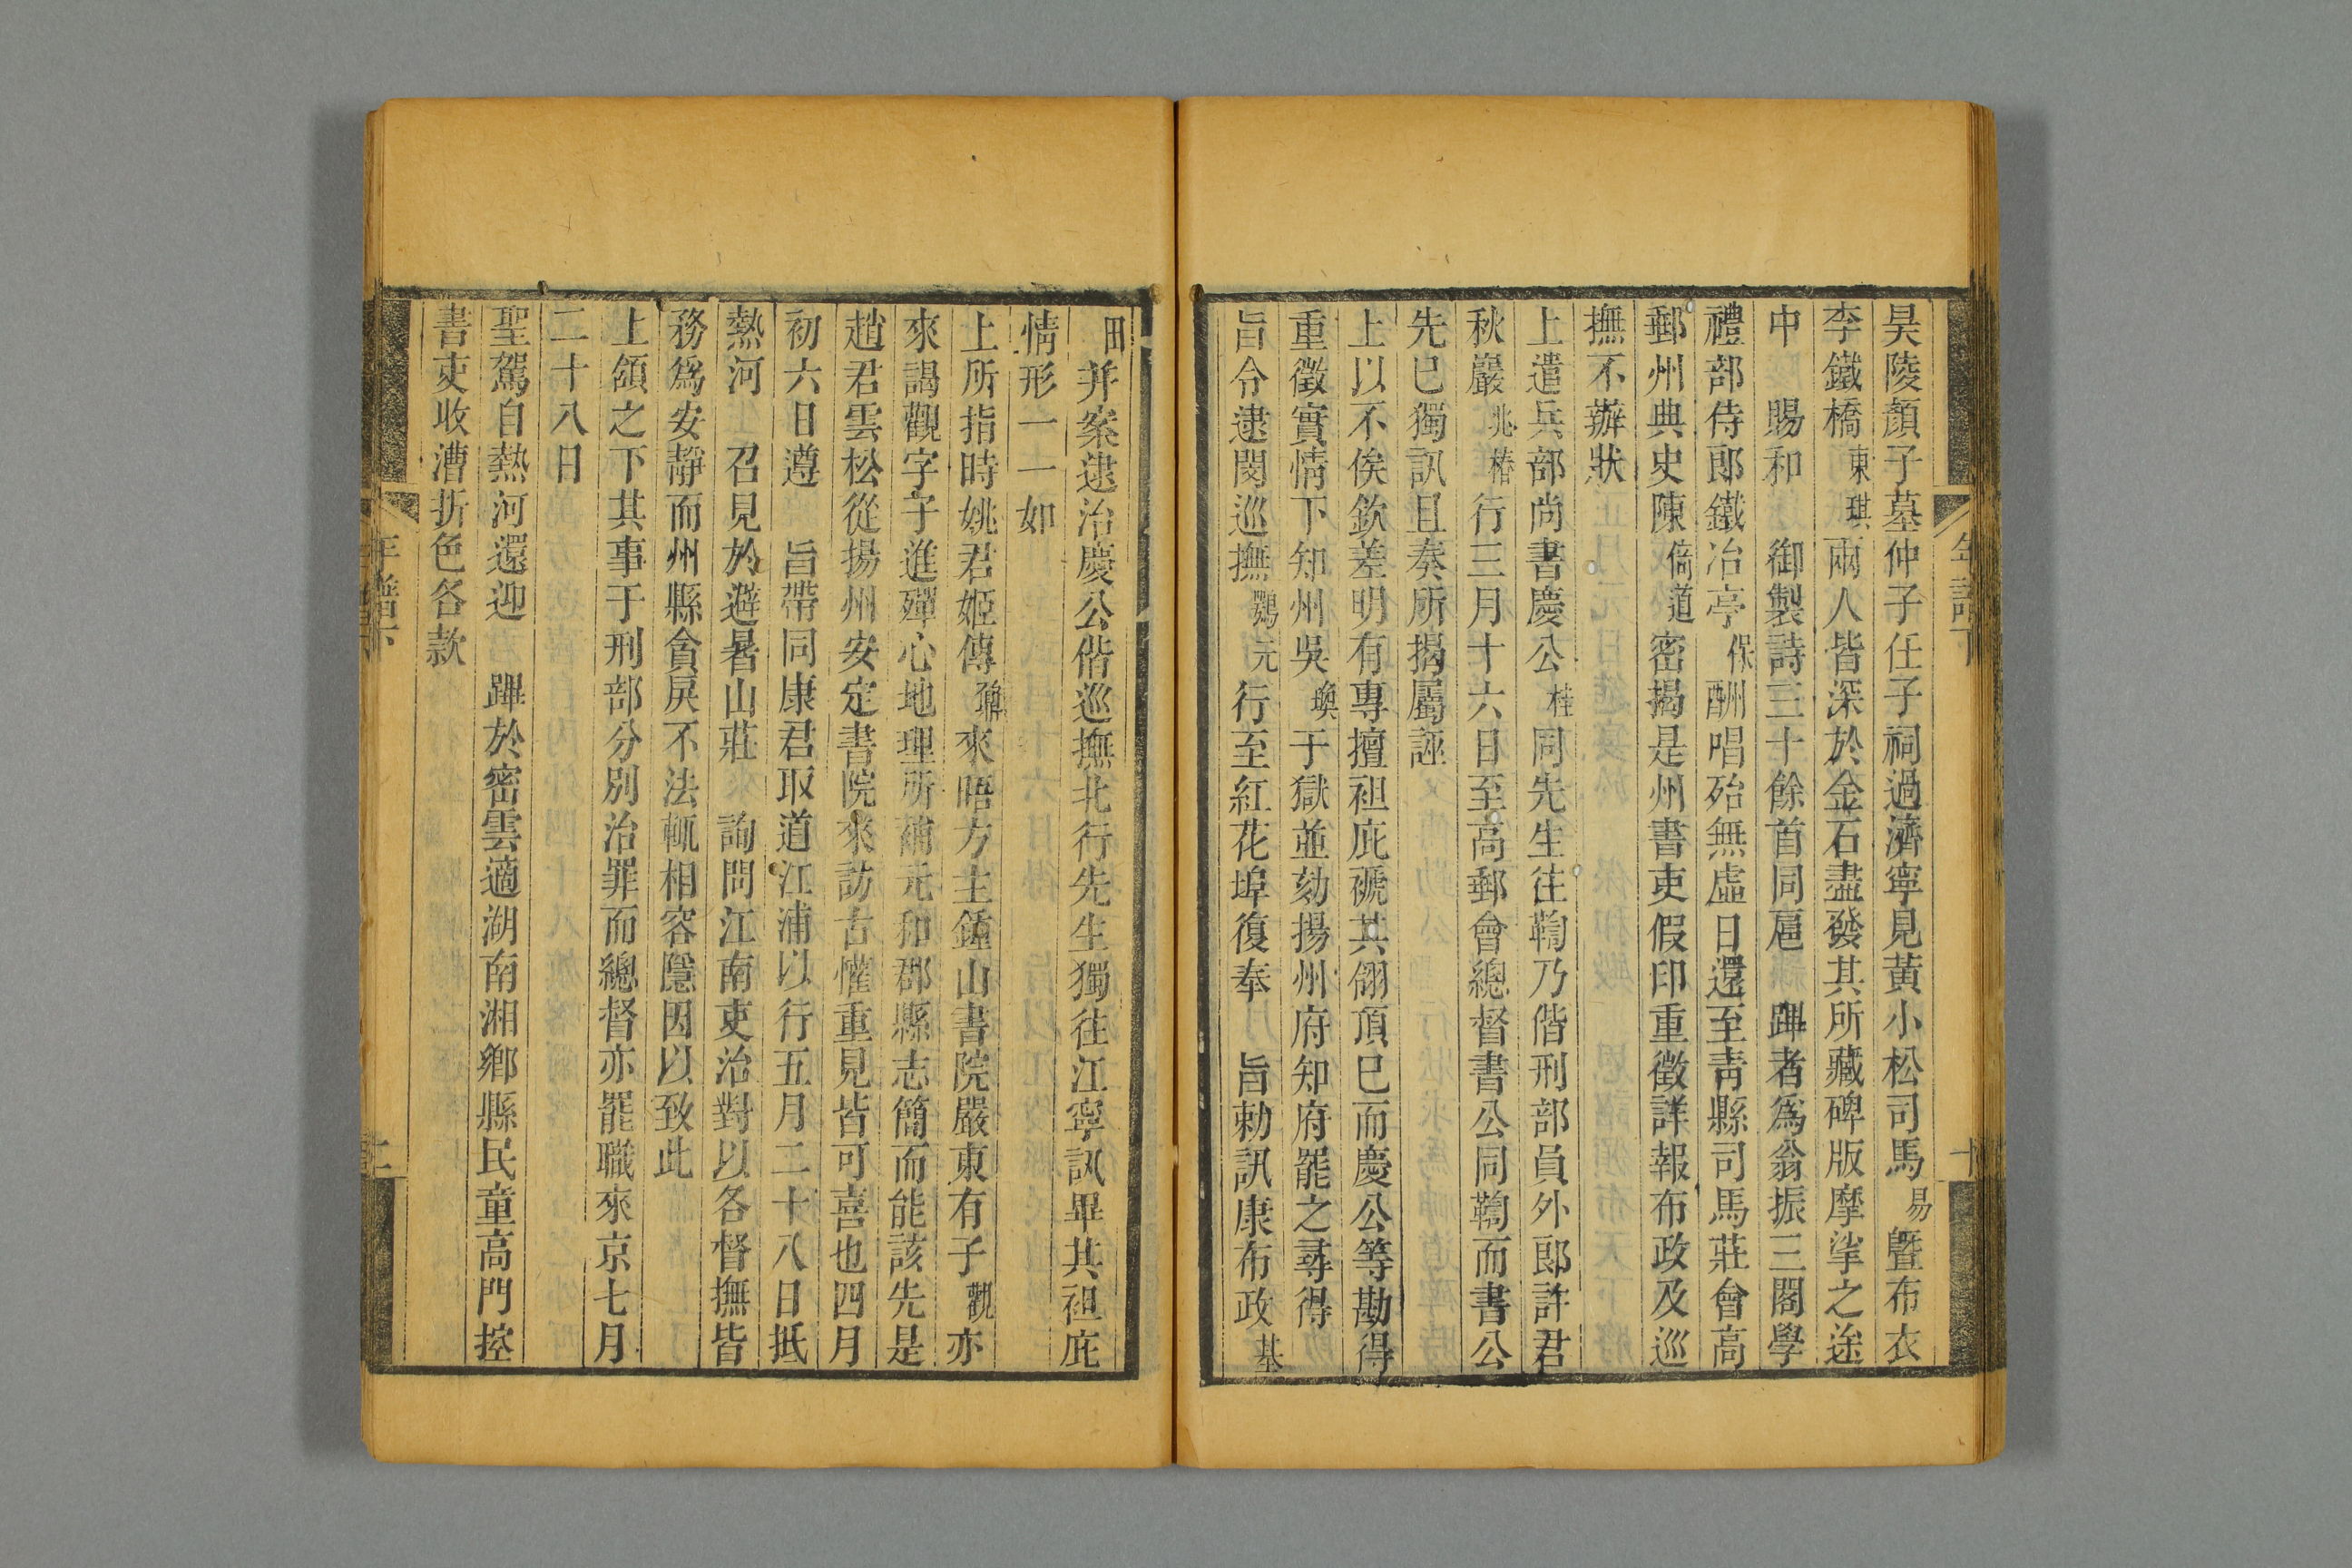 昊陵顏子墓仲子任子祠過濟寧見黃小松司馬易曁布衣
李鐵橋東琪兩人皆深於金石盡發其所藏碑版摩挲之途
中 賜和 御製詩三十餘首同扈 蹕者爲翁振三閣學
禮部侍郎鐵冶亭保酬唱殆無虛日還至靑縣司馬莊會高
郵州典史陳倚道密揭是州書吏假印重徵詳報布政及巡
撫不辦狀
上遣兵部尚書慶公桂同先生往鞫乃偕刑部員外郎許君
秋巖兆椿行三月十六日至高郵會總督書公同鞫而書公
先已獨訊且奏所揭屬誣
上以不俟欽差明有專擅袒庇褫其翎頂已而慶公等勘得
重徵實情下知州吳瑍于獄並劾揚州府知府罷之尋得
旨令逮閔巡撫鶚元行至紅花埠復奉 旨勅訊康布政基
田并案逮治慶公偕巡撫北行先生獨往江寧訊畢其袒庇
情形一一如
上所指時姚君姬傳鼐來晤方主鍾山書院嚴東有子觀亦
來謁觀字子進殫心地理所補元和郡縣志簡而能該先是
趙君雲松從揚州安定書院來訪古懽重見皆可喜也四月
初六日遵 旨帶同康君取道江浦以行五月二十八日抵
熱河 召見於避暑山莊 詢問江南吏治對以各督撫皆
務爲安靜而州縣貪戾不法輒相容隱因以致此
上頷之下其事于刑部分別治罪而總督亦罷職來京七月
二十八日
聖駕自熱河還迎 蹕於密雲適湖南湘鄉縣民童高門控
書吏收漕折色各款
年譜下
十
年譜下